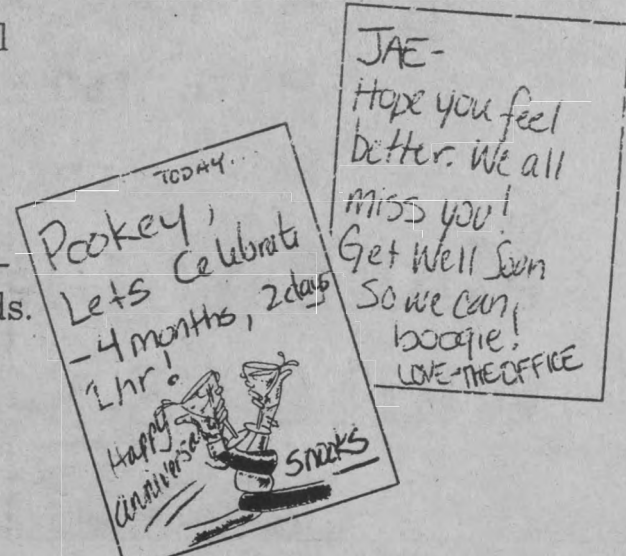 l
ls.
TODAY..
Pookey,
Lets Celebrate
-4 months, 2days
1hr!
Happy
anniversa
snooks
JAE-
Hope you feel
better. We all
miss you!
Get Well Soon
So we can,
boogie!
LOVE-THE OFFICE